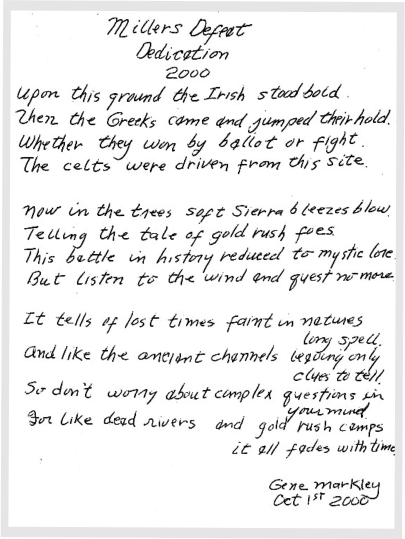 Millers Defeat
Dedication
2000
Upon this ground the Irish stood bold.
Then the Greeks came and jumped their hold.
Whether they won by ballot or fight.
The celts were driven from this site.
Now in the trees soft Sierra bleezes blow.
Telling the tale of gold rush foes.
This battle in history reduced to mystic lore.
But listen to the wind and quest no more.
It tells of lost times faint in natures
long spell.
And like the ancient channels leaving only
clues to tell.
So don't worry about complex questions in
your mind
For like dead rivers and gold rush camps
it all fades with time.
Gene Markley
Oct 1st 2000